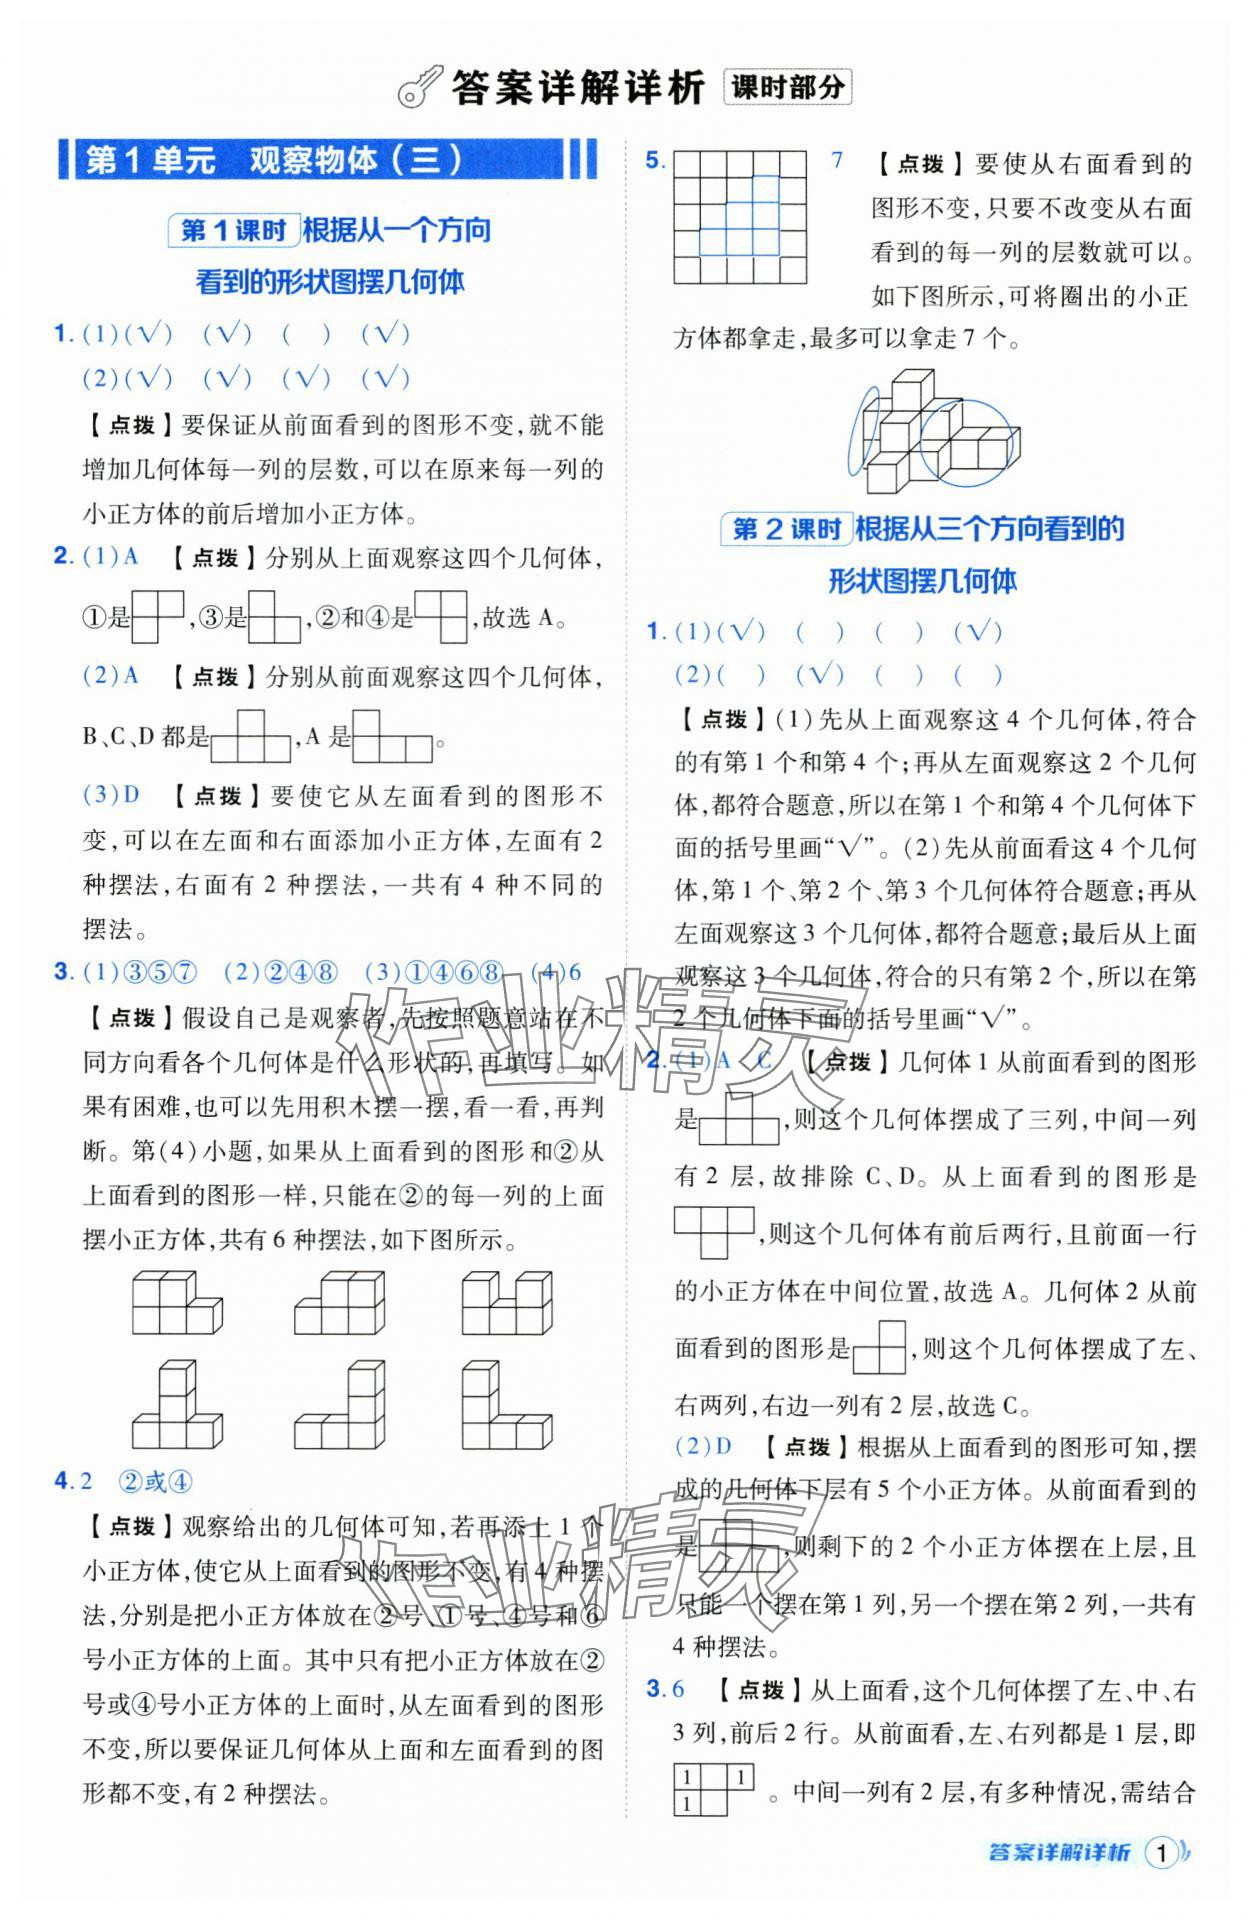 答案详解详析 课时部分
第1单元 观察物体(三)
第1课时 根据从一个方向
看到的形状图摆几何体
1. (1)(√) (√) ( ) (√)
(2)(√) (√) (√) (√)
【点拨】要保证从前面看到的图形不变,就不能
增加几何体每一列的层数,可以在原来每一列的
小正方体的前后增加小正方体。
2. (1)A 【点拨】分别从上面观察这四个几何体,
①是,③是,②和④是,故选 A。
(2)A 【点拨】分别从前面观察这四个几何体,
B、C、D 都是,A 是。
(3)D 【点拨】要使它从左面看到的图形不
变,可以在左面和右面添加小正方体,左面有 2
种摆法,右面有 2 种摆法,一共有 4 种不同的
摆法。
3. (1)③⑤⑦ (2)②④⑧ (3)①④⑥⑧ (4)6
【点拨】假设自己是观察者,先按照题意站在不
同方向看各个几何体是什么形状的,再填写。如
果有困难,也可以先用积木摆一摆,看一看,再判
断。第(4)小题,如果从上面看到的图形和②从
上面看到的图形一样,只能在②的每一列的上面
摆小正方体,共有 6 种摆法,如下图所示。
4. 2 ②或④
【点拨】观察给出的几何体可知,若再添上 1 个
小正方体,使它从上面看到的图形不变,有 4 种摆
法,分别是把小正方体放在②号、①号、④号和⑥
号小正方体的上面。其中只有把小正方体放在②
号或④号小正方体的上面时,从左面看到的图形
不变,所以要保证几何体从上面和左面看到的图
形都不变,有 2 种摆法。
5. 7 【点拨】要使从右面看到的
图形不变,只要不改变从右面
看到的每一列的层数就可以。
如下图所示,可将圈出的小正
方体都拿走,最多可以拿走 7 个。
第2课时 根据从三个方向看到的
形状图摆几何体
1. (1)(√) ( ) ( ) (√)
(2)( ) (√) ( ) ( )
【点拨】(1)先从上面观察这 4 个几何体,符合
的有第 1 个和第 4 个;再从左面观察这 2 个几何
体,都符合题意,所以在第 1 个和第 4 个几何体下
面的括号里画“√”。(2)先从前面看这 4 个几何
体,第 1 个、第 2 个、第 3 个几何体符合题意;再从
左面观察这 3 个几何体,都符合题意;最后从上面
观察这 3 个几何体,符合的只有第 2 个,所以在第
2 个几何体下面的括号里画“√”。
2. (1)A C 【点拨】几何体 1 从前面看到的图形
是,则这个几何体摆成了三列,中间一列
有 2 层,故排除 C、D。从上面看到的图形是
,则这个几何体有前后两行,且前面一行
的小正方体在中间位置,故选 A。几何体 2 从前
面看到的图形是,则这个几何体摆成了左、
右两列,右边一列有 2 层,故选 C。
(2)D 【点拨】根据从上面看到的图形可知,摆
成的几何体下层有 5 个小正方体。从前面看到的
是,则剩下的 2 个小正方体摆在上层,且
只能一个摆在第 1 列,另一个摆在第 2 列,一共有
4 种摆法。
3. 6 【点拨】从上面看,这个几何体摆了左、中、右
3 列,前后 2 行。从前面看,左、右列都是 1 层,即
1 1
1
。中间一列有 2 层,有多种情况,需结合
作业精灵
作业精灵
答案详解详析 1